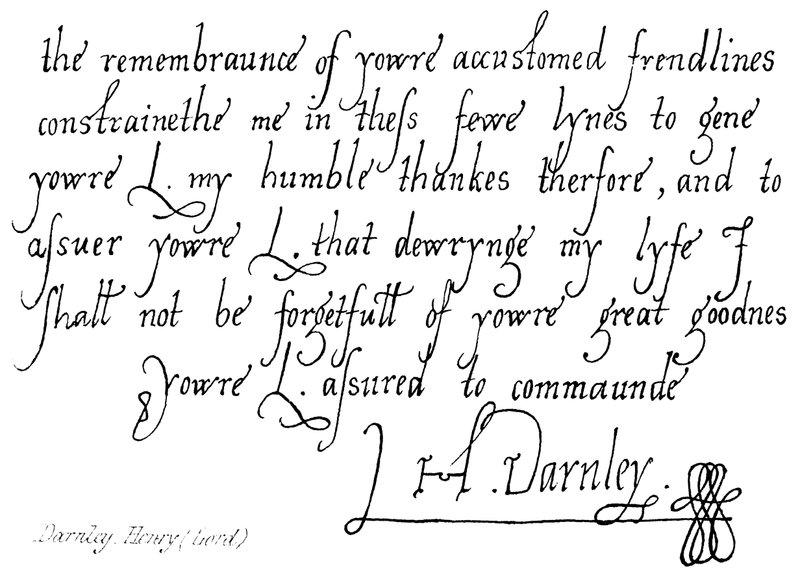 the remembraunce of yowre accustomed frendlines
constrainethe me in theſs fewe lynes to geue
yowre L. my humble thankes therfore, and to
aſsuer yowre L. that dewrynge my lyfe I
ſhall not be forgetfull of yowre great goodnes
yowre L. aſsured to commaunde
H. Darnley.
Darnley, Henry (Lord)